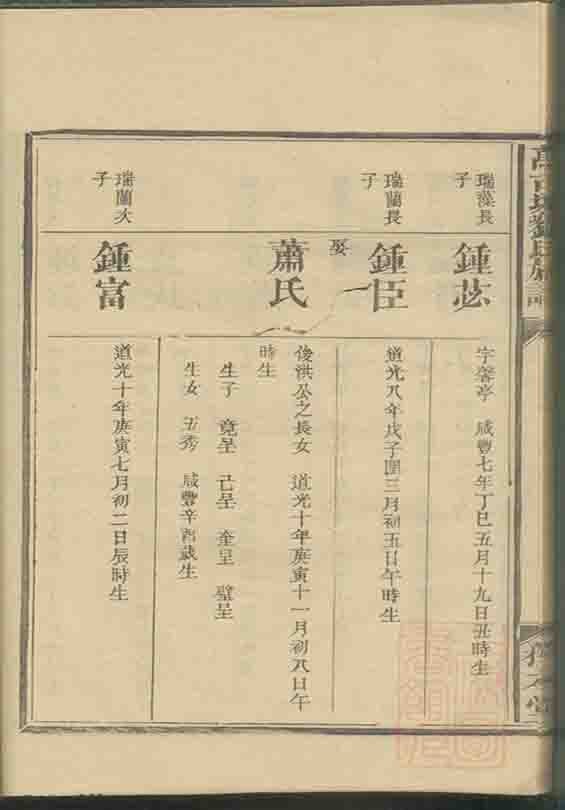 瑞藻長
子
鍾苾
字馨亭 咸豐七年丁巳五月十九日丑時生
瑞蘭長
子
鍾臣
道光八年戊子閏三月初五日午時生
娶
蕭氏
俊洪公之長女 道光十年庚寅十一月初八日午
時生
生子 竟呈 己呈 奎呈 璧呈
生女 玉秀 咸豐辛酉歲生
瑞蘭次
子
鍾富
道光十年庚寅七月初二日辰時生